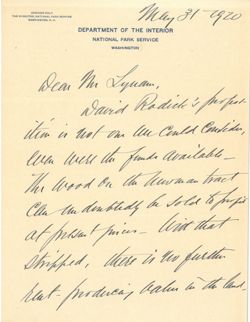 ADDRESS ONLY
THE DIRECTOR, NATIONAL PARK SERVICE
WASHINGTON, D.C.
May 31 1920
DEPARTMENT OF THE INTERIOR
NATIONAL PARK SERVICE
WASHINGTON
Dear Mr Lynam,
David Rodick's propo-
sition is not one we could consider,
even were the funds available –
The wood on the Newman tract
can undoubtedly be sold to profit
at present prices – With that
stripped, there is no further
rent-producing value in the land,